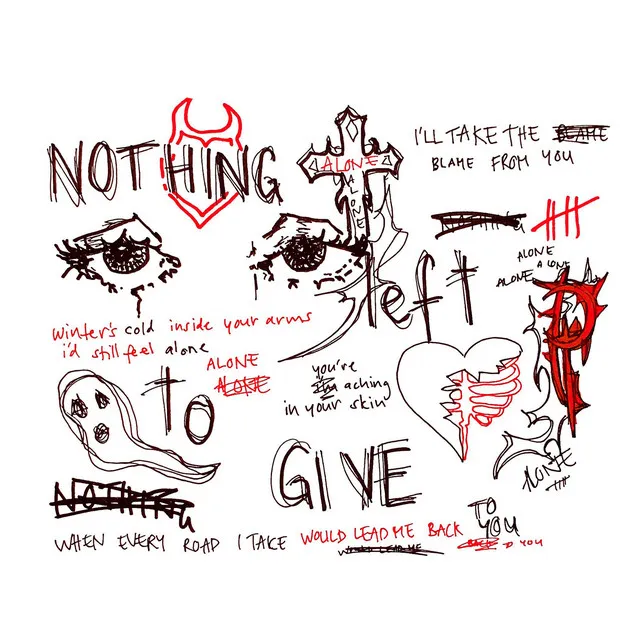 NOTHING
ALONE
ALONE
I'LL TAKE THE BLAME
BLAME FROM YOU
left
ALONE
ALONE
ALONE
winter's cold inside your arms
i'd still feel alone
ALONE
ALONE
TO
you're
I'm aching
in your skin
GIVE
ALONE
NOTHING
WHEN EVERY ROAD I TAKE WOULD LEAD ME BACK TO YOU
WOULD LEAD ME
BACK TO YOU